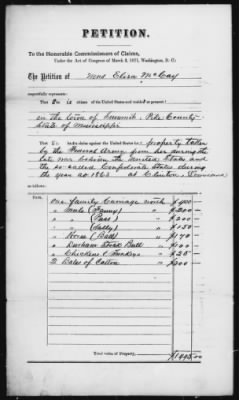 PETITION.
To the Honorable Commissioners of Claims,
Under the Act of Congress of March 3, 1871, Washington, D. C.:
The Petition of Mrs Eliza McCay
respectfully represents:
That She is citizen of the United States and resides at present
in the town of Summit, Pike County
State of Mississippi
That She has a claim against the United States for property taken
by the Federal Army from her during the
late war between the United States and
the so-called Confederate States during
the year 1863 at Clinton, Louisiana
as follows:
One family Carriage worth $400
" Mule (Fanny) " $200
" " (Pass) " $200
" " (Sally) " $150
" Horse (Ball) " $140
" Durham Stock Bull " $100
" Chickens & Turkeys " $25
2 Bales of Cotton " $200
Total value of Property,